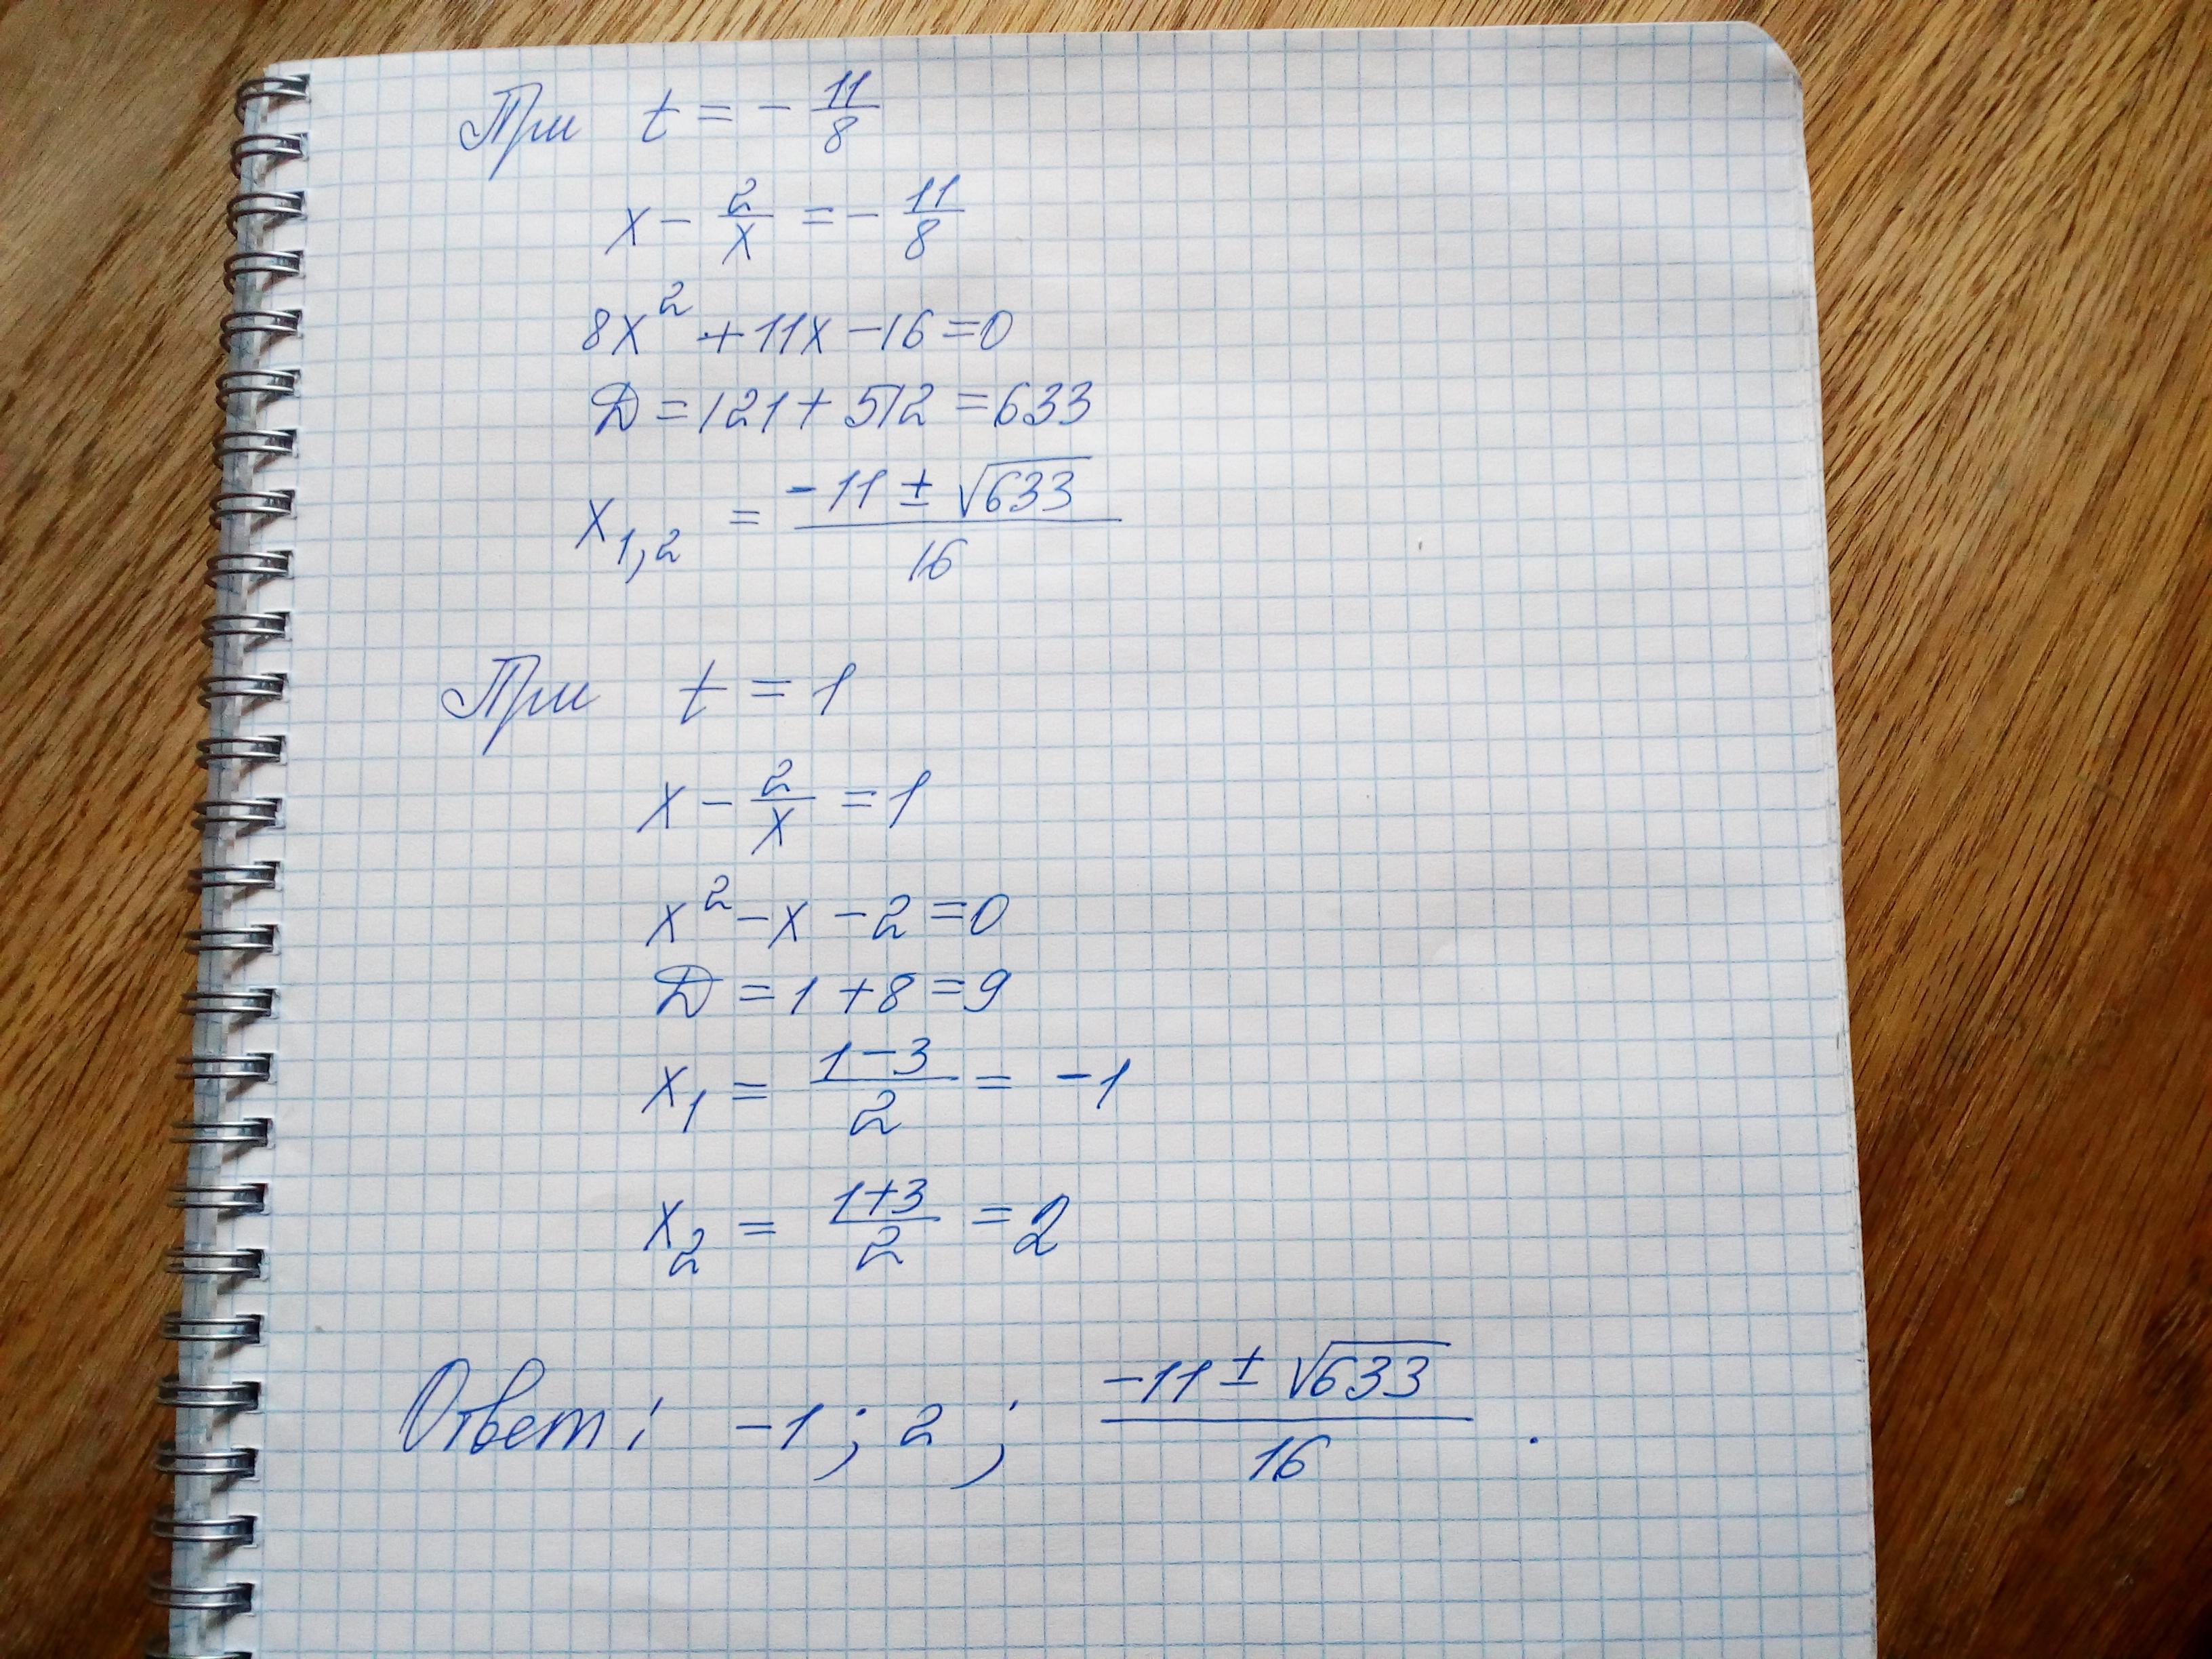 При t = - 11/8
x - 2/x = - 11/8
8x² + 11x - 16 = 0
D = 121 + 512 = 633
x₁,₂ = (-11 ± √633)/16
При t = 1
x - 2/x = 1
x² - x - 2 = 0
D = 1 + 8 = 9
x₁ = (1 - 3)/2 = -1
x₂ = (1 + 3)/2 = 2
Ответ: -1; 2; (-11 ± √633)/16.